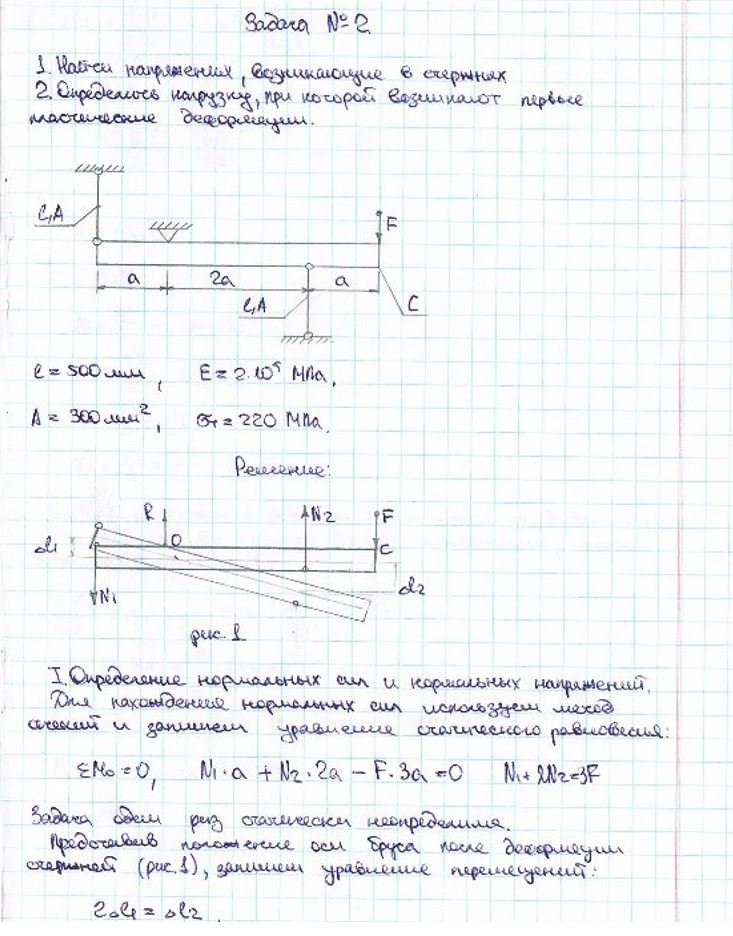 Задача № 2
1. Найти напряжения, возникающие в стержнях
2. Определить нагрузку, при которой возникают первые
пластические деформации.
l,A
F
a
2a
a
l,A
C
l = 500 мм, E = 2·10⁵ МПа,
A = 300 мм², σт = 220 МПа.
Решение:
R
N2
F
O
C
Δl1
N1
Δl2
рис. 1
I. Определение нормальных сил и нормальных напряжений.
Для нахождения нормальных сил используем метод
сечений и запишем уравнение статического равновесия:
ΣMo = 0, N1·a + N2·2a − F·3a = 0 N1 + 2N2 = 3F
Задача один раз статически неопределима.
Представив положение оси бруса после деформации
стержней (рис. 1), запишем уравнение перемещений:
2Δl1 = Δl2.